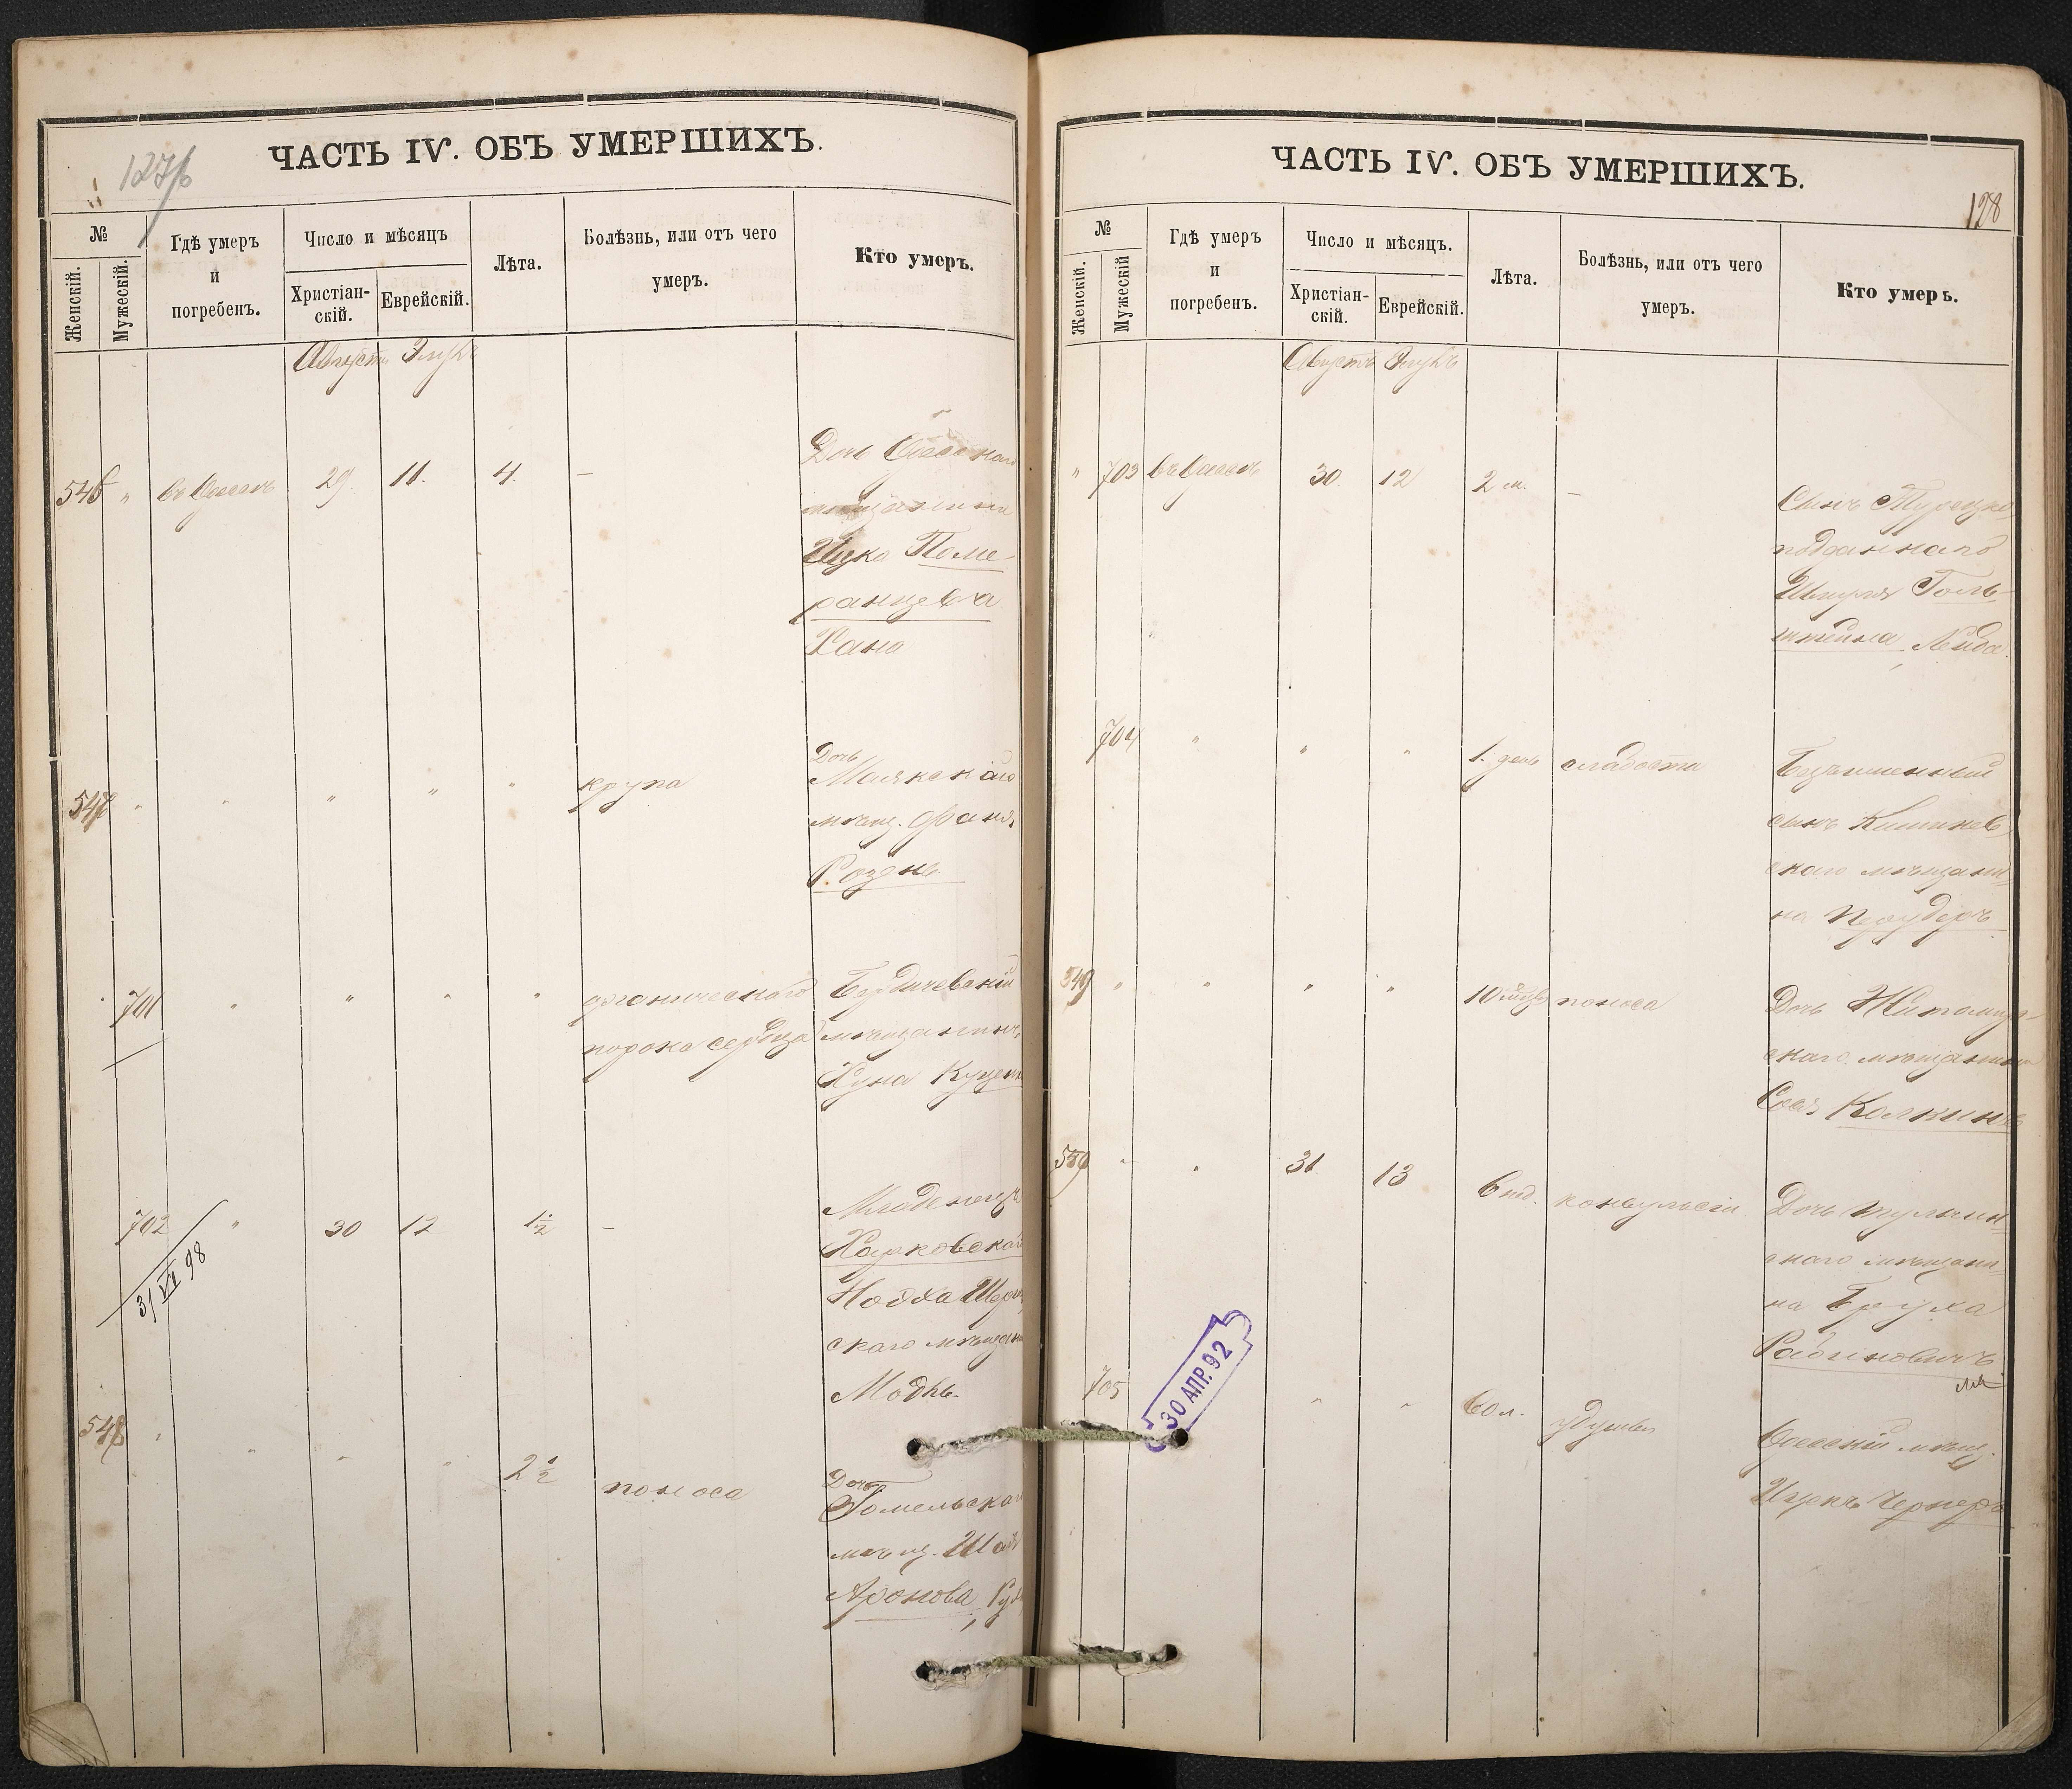 ЧАСТЬ IV. ОБЪ УМЕРШИХЪ.
№
Женскій.
Мужескій.
Гдѣ умеръ
и
погребенъ.
Число и мѣсяцъ
Христіан-
скій.
Еврейскій.
Лѣта.
Болѣзнь, или отъ чего
умеръ.
Кто умеръ.
Августъ Элулъ
546 " въ Одессѣ 29. 11. 4. —
Дочь Одесскаго
мѣщанина
Ицко Поме-
ранцева
Хана
547 " " " " " крупа
Дочь
Маякскаго
мѣщ. Фаня
Розенъ
701 " " " " органическаго
порока сердца
Бердичевскій
мѣщанинъ
Куна
702 " 30 12 1½ —
31/VI 98
Младенецъ
Харковскаго
скаго
548 " " " " 2½ поноса
Дочь
Гомельска
мѣщ.
Аронова,
ЧАСТЬ IV. ОБЪ УМЕРШИХЪ.
128
№
Женскій.
Мужескій
Гдѣ умеръ
и
погребенъ.
Число и мѣсяцъ.
Христіан-
скій.
Еврейскій.
Лѣта.
Болѣзнь, или отъ чего
умеръ.
Кто умеръ.
Августъ Элулъ
" 703 въ Одессѣ 30 12 2 м. —
Сынъ Турецко
подданнаго
Голь-
штейна, Лейба.
704 " " " 1. день слабости
Безъименный
сынъ Кишинев
скаго мѣщани-
на
549 " " " " 10 поноса
Дочь Житомир-
скаго мѣщанина
Колкинъ
550 " " 31 13 6 нед. конвульсіи
Дочь Тульчин-
скаго мѣщани-
на Бруха
Рабиновичъ
705 " " 60 л. удушья
Одесскій мѣщ.
Ицекъ Чернеръ
30 АПР. 92